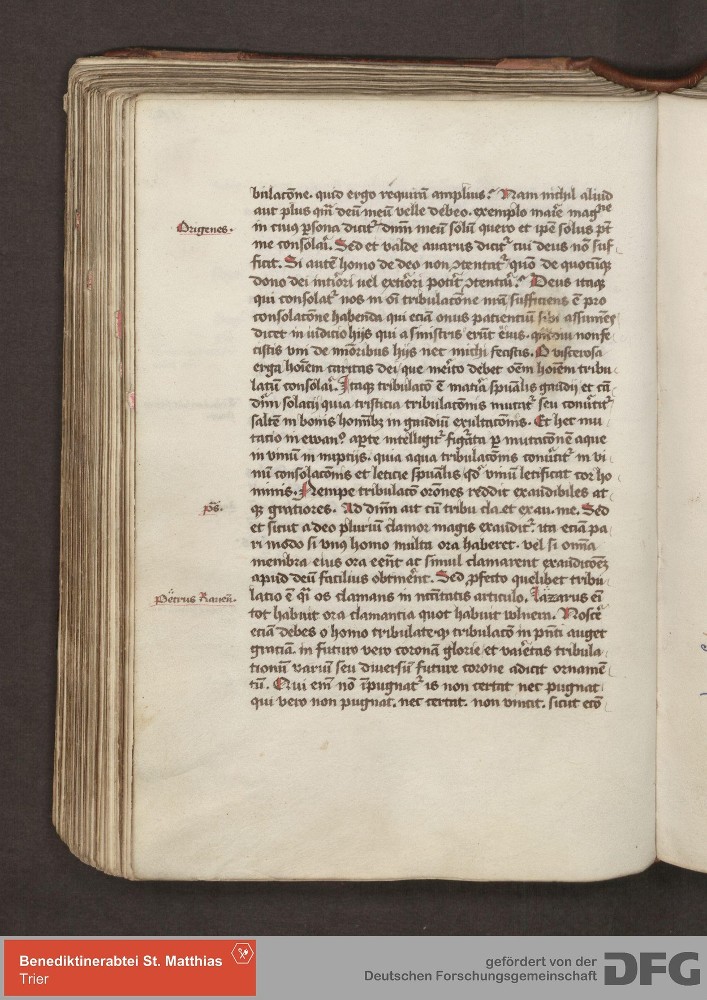 bulacōne. quid ergo requirū amplius? Nam nichil aliud
aut plus qm̄ deū meū velle debeo. exemplo marie mag
Origenes.
in cuius p̱sona dicit᷑ dm̄m meū solū quero et ip̄e solus pt̄
me consolari. Sed et valde auarus dicit᷑ cui deus nō suf
ficit. Si autē homo de deo non ꝯtentat᷑ quō de quocūqꝫ
dono dei int̓iori uel ext̓iori pot̓it ꝯtentari? Deus itaqꝫ
qui consolat᷑ nos in oi tribulacōne nr̄a sufficiens ē pro
consolacōne habenda qui eciā onus pacientiū sibi assumēs
dicet in iudicio hijs qui a sinistris erūt eius. non fe
cistis vni de mīoribus hijs nec michi fecistis. O viscerosa
erga hoīem caritas dei que me̓ito debet oēm hoīem tribu
latū consolari. Itaqꝫ tribulacō ē mat̓ia sp̄ualis gaudij et cā
solacij quia tristicia tribulacōnis mutat᷑ seu conu̓tit᷑
saltē in bonis hom̄ibꝫ in gaudiū exultacōnis. Et hec mu
tacio in ewanᵒ. ap̱te intelligit᷑ figurata p̱ mutacōnē aque
in vinū in nuptijs. quia aqua tribulacōnis conu̓tit᷑ in vi
nū consolacōnis et leticie sp̄ualis qd̓ vinū letificat cor ho
minis. Nempe tribulacō orōnes reddit exaudibiles at
p̄s.
qꝫ graciores. Ad dn̄m aut cū tribu cla. et exau. me. Sed
et sicut a deo pluriū clamor magis exaudit᷑. ita eciā pa
ri modo si vnꝰ homo multa ora haberet. vel si om̄ia
membra eius ora eēnt ac simul clamarent exaudicōeꝫ
apud deū facilius obtinēt. Sed p̱fecto quelibet tribu
Petrus Raueñ.
lacio ē q̓i os clamans in nc̄itatis articulo. Lazarus eī
tot habuit ora clamantia quot habuit wlnera. Nosce̓
eciā debes o homo tribulate qꝫ tribulacō in pn̄ti auget
graciam. in futuro vero coronā glorie et var̓ietas tribula
tionū variū seu diuersū future corone adicit ornamē
tū. Qui em̄ nō īpugnat᷑ is non certat nec pugnat
qui vero non pugnat. nec certat. non vincit. sicut ecō
Benediktinerabtei St. Matthias
Trier
gefördert von der
Deutschen Forschungsgemeinschaft
DFG